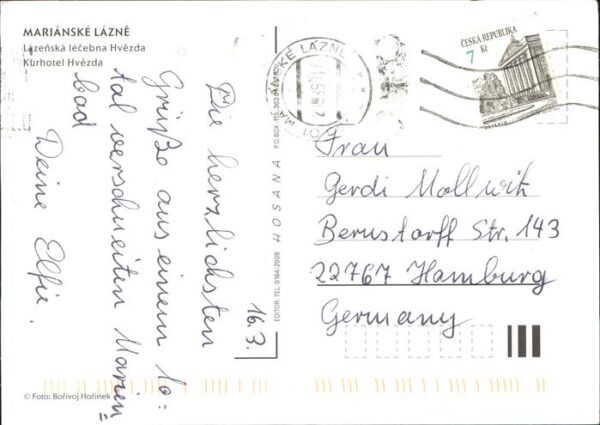 MARIÁNSKÉ LÁZNĚ
Lázeňská léčebna Hvězda
Kurhotel Hvězda
16.3.
Die herzlichsten
Grüße aus einem to=
tal verschneiten Marien
bad
Deine Elfie.
© Foto: Bořivoj Hořínek
EDITOR: TEL. 0164/2909 HOSANA
MARIÁNSKÉ LÁZNĚ
ČESKÁ REPUBLIKA
7 Kč
Frau
Gerdi Mollwitz
Bernstorff Str. 143
22767 Hamburg
Germany